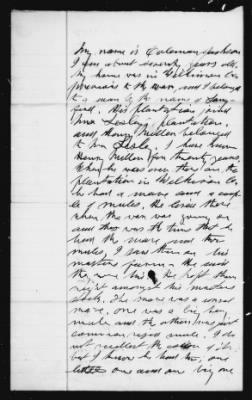 My name is Coleman Jackson
I am about seventy years old.
My home was in Wilkinson Co
previous to the war, and I belonged
to a man by the name of
His plantation joined
Mr Leslie's plantation,
and Henry Mellon belonged
to Mr Leslie. I have known
Henry Mellon for twenty years.
When he was over there on the
plantation in Wilkinson Co
he had a mare and a couple
of mules, he used them
when the war was going on
and this was the time that he
had the mare and the
mules, I saw them on his
masters place and
the he kept them
right amongst his masters
stock. The mare was a sorrel
mare, one was a big
mule and the other was just
common sized mule. I do
not recollect the color of it
but I know he had two, one
one and one big one